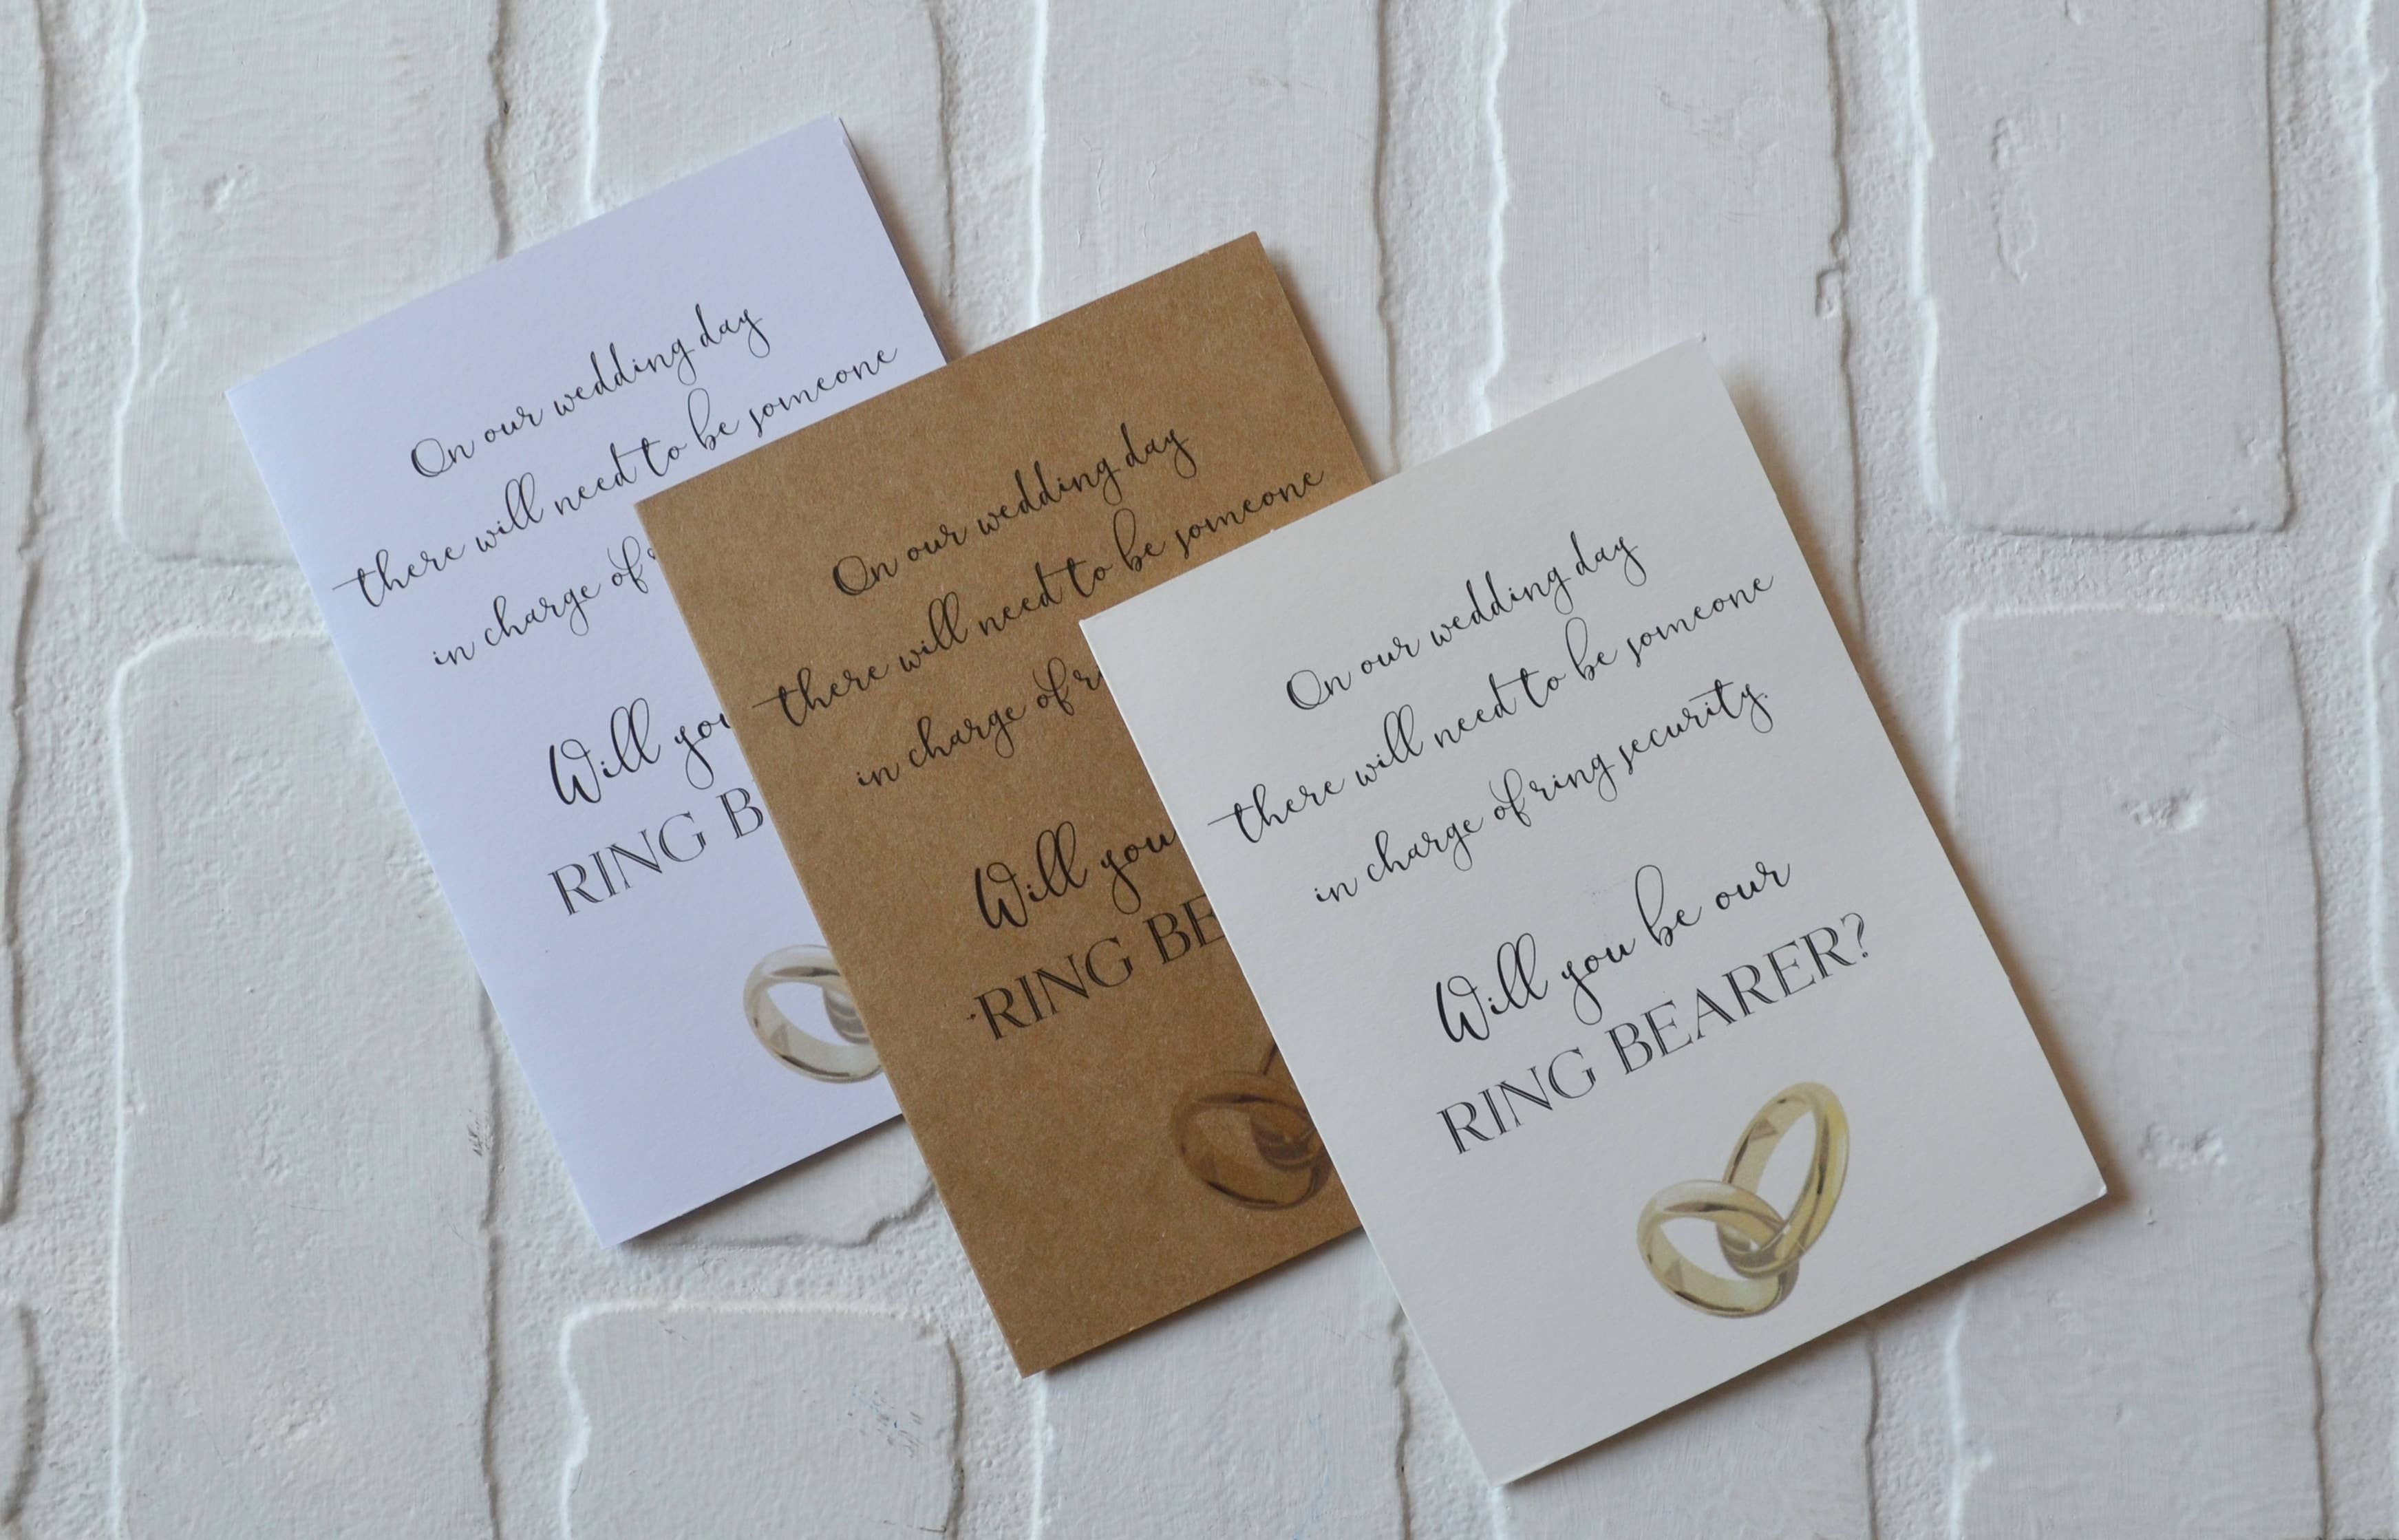 On our wedding day
there will need to be someone
in charge of
Will you
RING B
On our wedding day
there will need to be someone
in charge of r
Will you
RING BE
On our wedding day
there will need to be someone
in charge of ring security.
Will you be our
RING BEARER?